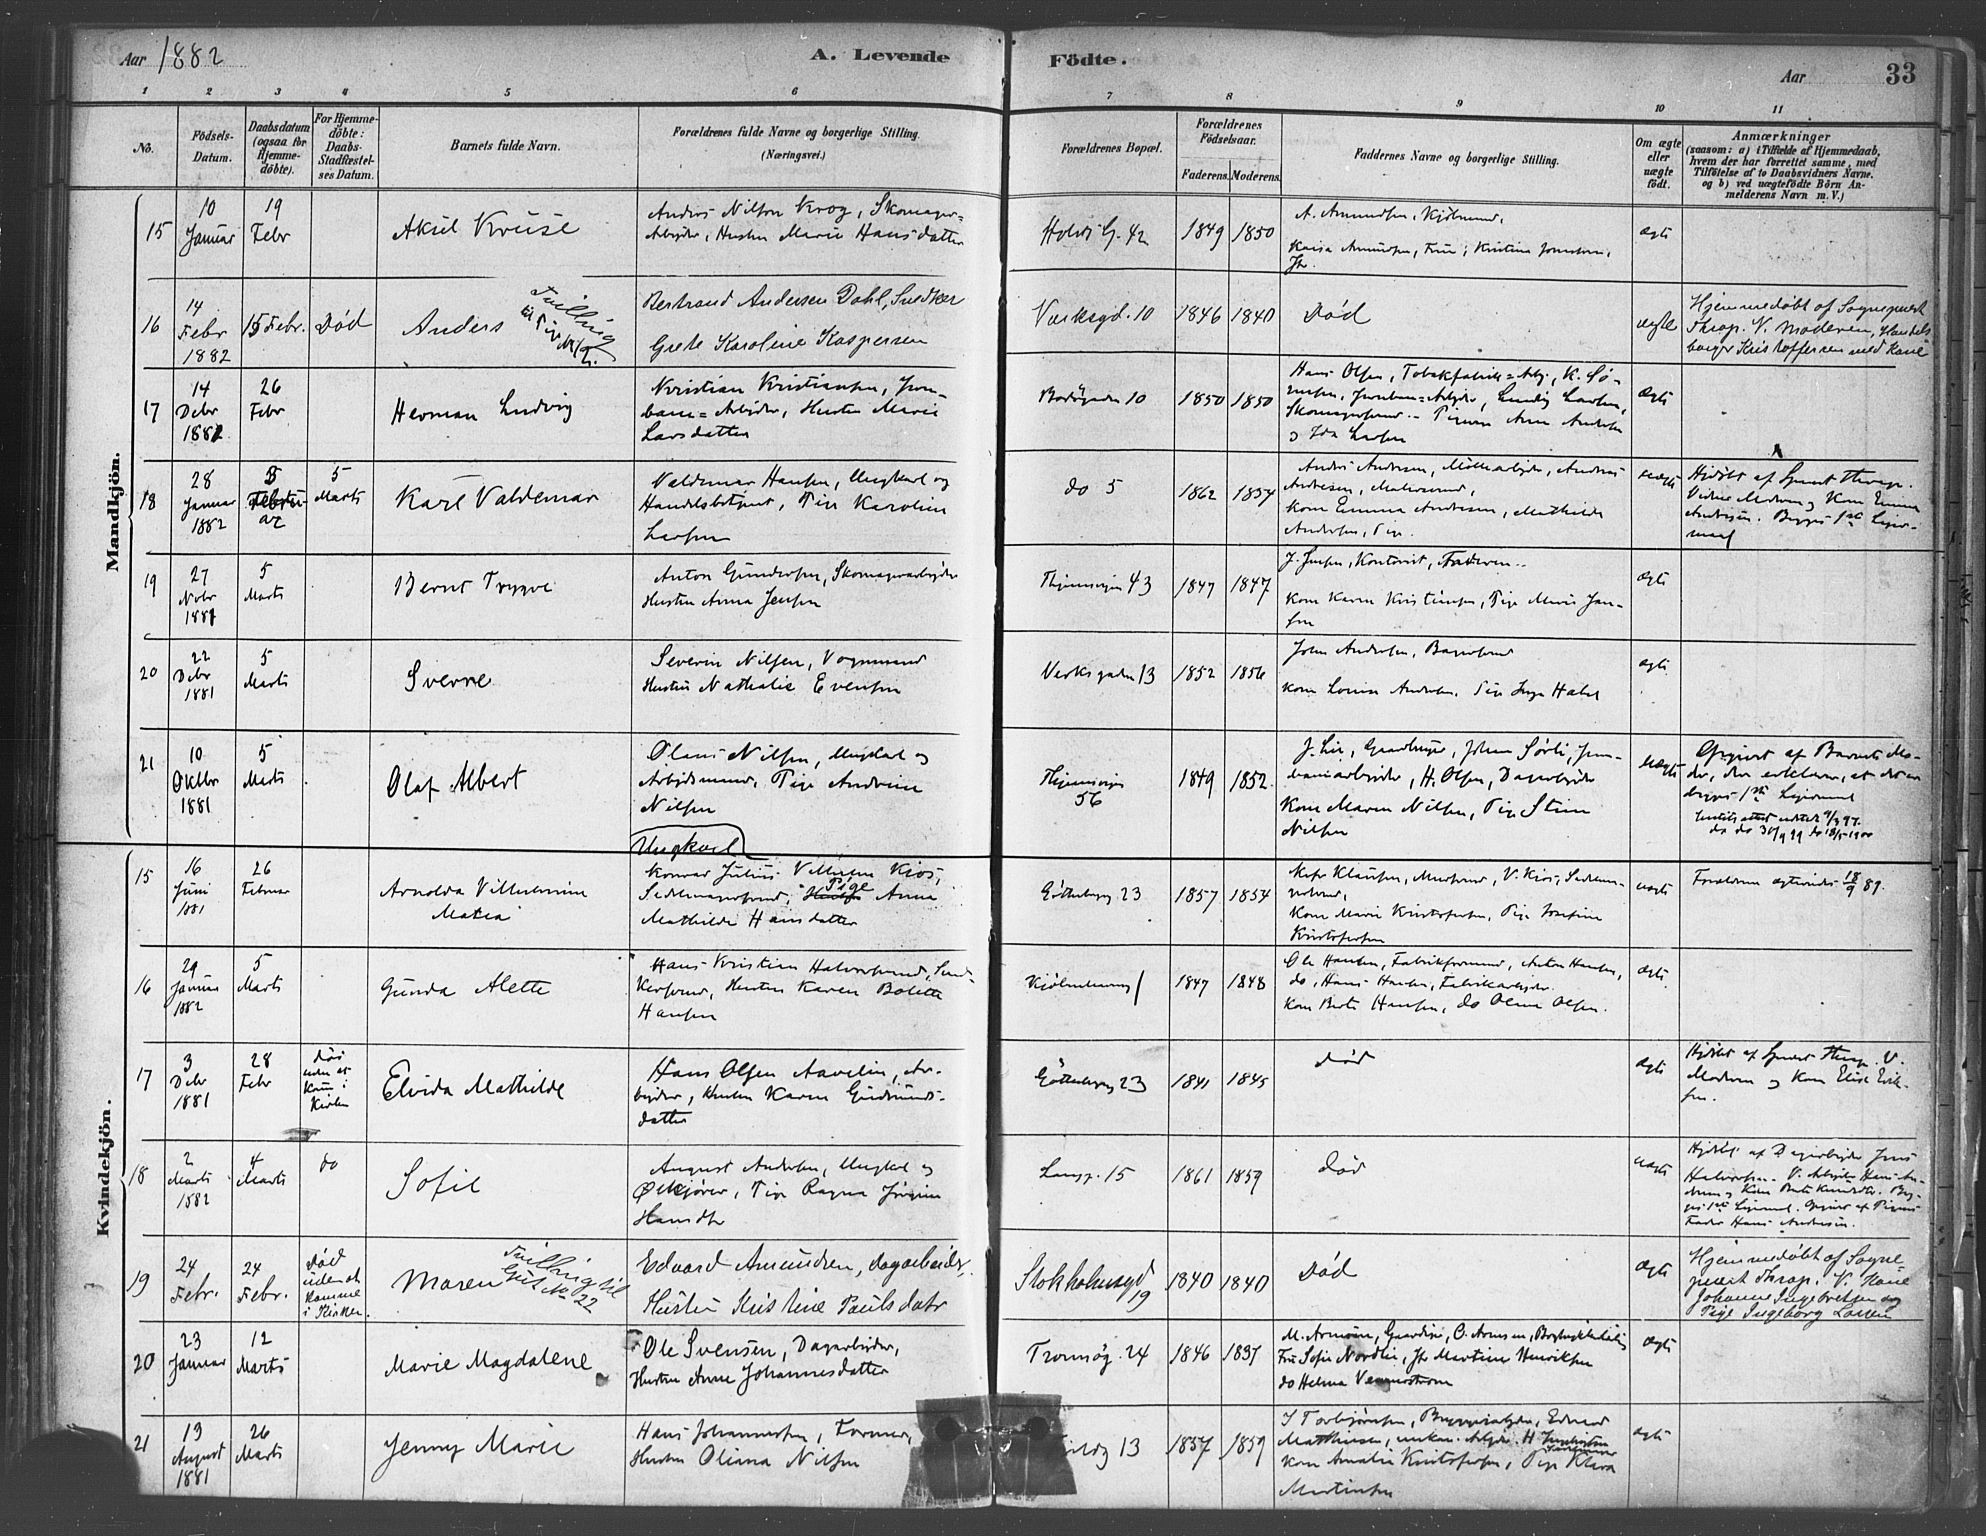 Aar 1882
A. Levende
Födte.
Aar
33
1 2 3 4 5 6 7 8 9 10 11
No.
Födsels-
Datum.
Daabsdatum
(ogsaa for
Hjemme-
döbte).
For Hjemme-
döbte:
Daabs-
Stadfæstel-
ses Datum.
Barnets fulde Navn.
Forældrenes fulde Navne og borgerlige Stilling.
(Næringsvei.)
Forældrenes Bopæl.
Forældrenes
Födselsaar.
Faderens. Moderens.
Faddernes Navne og borgerlige Stilling.
Om ægte
eller
uægte
födt.
Anmærkninger
(saasom: a) i Tilfælde af Hjemmedaab,
hvem der har forrettet samme, med
Tilföielse af to Daabsvidners Navne.
og b) ved uægtefödte Börn An-
melderens Navn m. V.)
Mandkjön.
15
10
Januar
19
Febr
Aksel Kruse
Anders Nilsen Krog, Skomager-
Arbejder, Hustru Marie Hansdatter
42
1849
1850
A. Amundsen,
Kaisa Amundsen, Frue, Kristine
Ægte
16
14
Febr
1882
15 Febr.
Død
Anders
Tvilling
Bertrand Andersen Dahl, Snedker
Grete Karoline Kaspersen
Værksgd. 10
1846
1840
Død
uægte
Hjemmedøbt af Sogneprest
Thrap. V. Moderen, Handels
borger Kristoffersen med Kone
17
14
Debr
1881
26
Febr
Herman Ludvig
Kristian Kristiansen, Jern-
bane-Arbejder, Hustru Marie
Larsdatter
10
1850
1850
Hans Olsen, Tobakfabrik-Arb., K. Sø-
rensen, Jernbane-Arbejder, Ludvig Larsen,
Skomagersvend. Pigerne Anne Andersen
og Ida Larsen
Ægte
18
28
Januar
1882
5
Marts
Karl Valdemar
Valdemar Hansen, Ungkarl og
Handelsbetjent, Pige Karoline
Larsen
do 5
1862
1854
Anders Andersen, Møllearbejder, Andreas
Andresen,
Kone Emma Andresen, Mathilde
Andersen, Pige.
uægte
Hjdøbt af Spræst Thrap.
Vidner Modren og Kone Emma
Andresen. Begges 1ste Leier-
maal
19
27
Nobr
1881
5
Marts
Bernt Trygve
Anton Gundersen, Skomagerarbejder
Hustru Anna Jensen
43
1847
1847
J. Jensen, Kontorist, Faderen.
Kone Karen Kristensen, Pige Marie Jan-
sen
Ægte
20
22
Debr
1881
5
Marts
Sverre
Severin Nilsen, Vognmand
Hustru Nathalie Evensen
Verksgaden 13
1852
1856
John Andersen, Bagersvend
Kone Lovise Andersen. Pige Inga
ægte
21
10
Oktbr
1881
5
Marts
Olaf Albert
Olaus Nilsen, Ungkarl og
Arbejdsmand, Pige Andrine
Nilsen
56
1849
1852.
J. Lie, Gaardbruger, Johan Sørli, Jern-
banearbejder, H. Olsen, Dagarbejder
Kone Maren Nilsen, Pige Stina
Nilsen
uægte
Opgivet af Barnets Mo-
der, der erklærer, at det er
begges 1ste Leiermaal
Kvindekjön.
15
16
Juni
1881
26
Februar
Arnolda Vilhelmine
Maria
Ungkarl
Konrad Julius Vilhelm Kjos,
Sadelmagersvend, Pige Anna
Mathilde Hansdatter
Gøteborgg 23
1857
1854
Klausen, Mursvend, V. Kjos,
Kone Marie Kristofersen, Pige Josefine
Kristofersen
uægte
Forældrene ægteviede 18/9 87.
16
29
Januar
1882
5
Marts
Gunda Alette
Hans Kristian Halvorsrud, Sned-
kersvend, Hustru Karen Bolette
Hansen
1
1847
1848
Ole Hansen, Fabrikformand, Anton Hansen,
do, Hans Hansen, Fabrikarbejder
Kone Berte Hansen, do Oline Olsen.
Ægte
17
3
Debr
1881
28
Febr
død
uden at
komme i
Kirken
Elvida Mathilde
Hans Olsen Aavelin, Ar-
bejder, Hustru Karen Gudmunds-
datter
Gøteborgg 23
1841
1845
død
Ægte
Hjdøbt af Spræst Thrap. V.
Modren og Kone Elise Erik-
sen.
18
2
Marts
1882
4
Marts
do
Sofie
August Andersen, Ungkarl og
Ølkjører, Pige Ragna Jørgine
Hansdtr
Langg. 15
1861
1859
død
uægte
Hjdøbt af Dagarbejder Jens
Halvorsen. V. Arbejder Hans An-
dersen og Kone Berte Knudsdtr. Beg-
ges 1ste Leiermaal. Opgivet af Pigens
Fader Hans Andersen.
19
24
Febr.
24
Febr.
Død
uden at
komme
i Kirken
Maren
Tvilling til
Gut No 22
Edvard Amundsen, dagarbeider,
Hustru Kristine Paulsdatr
Stokholmsgd
19
1840
1840
Død
Ægte
Hjemmedøbt af Sogne
prest Thrap. V. Kone
Johanne Ingebretsen og
Pige Ingeborg Larsen
20
23
Januar
12
Marts
Marie Magdalene
Ole Svensen, Dagarbejder,
Hustru Anne Johannesdatter
Tromsøg. 24
1846
1837
Fru Sofie Nordlie, Jfr Martine Henriksen
do Helma Wennerstrøm
Ægte
21
13
August
1881
26
Marts
Jenny Marie
Hans Johannesen, Former,
Hustru Oliana Nilsen
13
1857
1859
J Torbjørnsen, Edvard
Mathisen,
Kone Amalie Kristofersen, Pige Klara
Martinsen
ægte